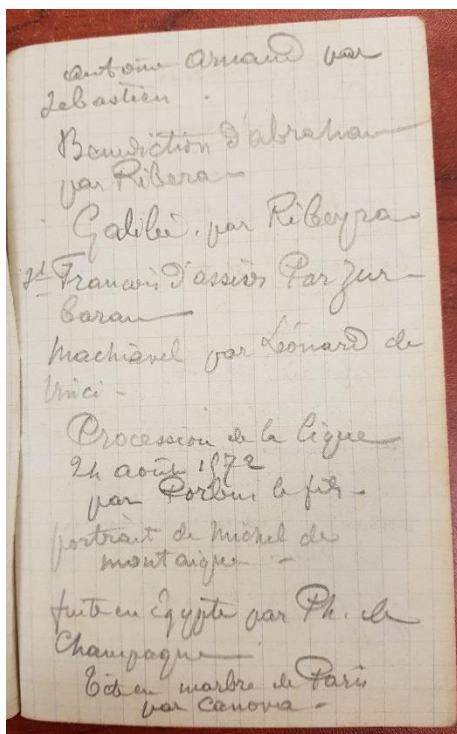 Antoine Arnaud par
Sebastien.
Benediction d'abraham
par Ribera -
Galilée. par Ribeyra
St François d'assises Par Zur-
baran
Machiavel par Léonard de
Vinci -
Procession de la ligue
24 août 1572
par Porbus le fils -
portrait de Michel de
montaigne -
fuite en Egypte par Ph. de
Champagne
Tête en marbre de Paris
par Canova -